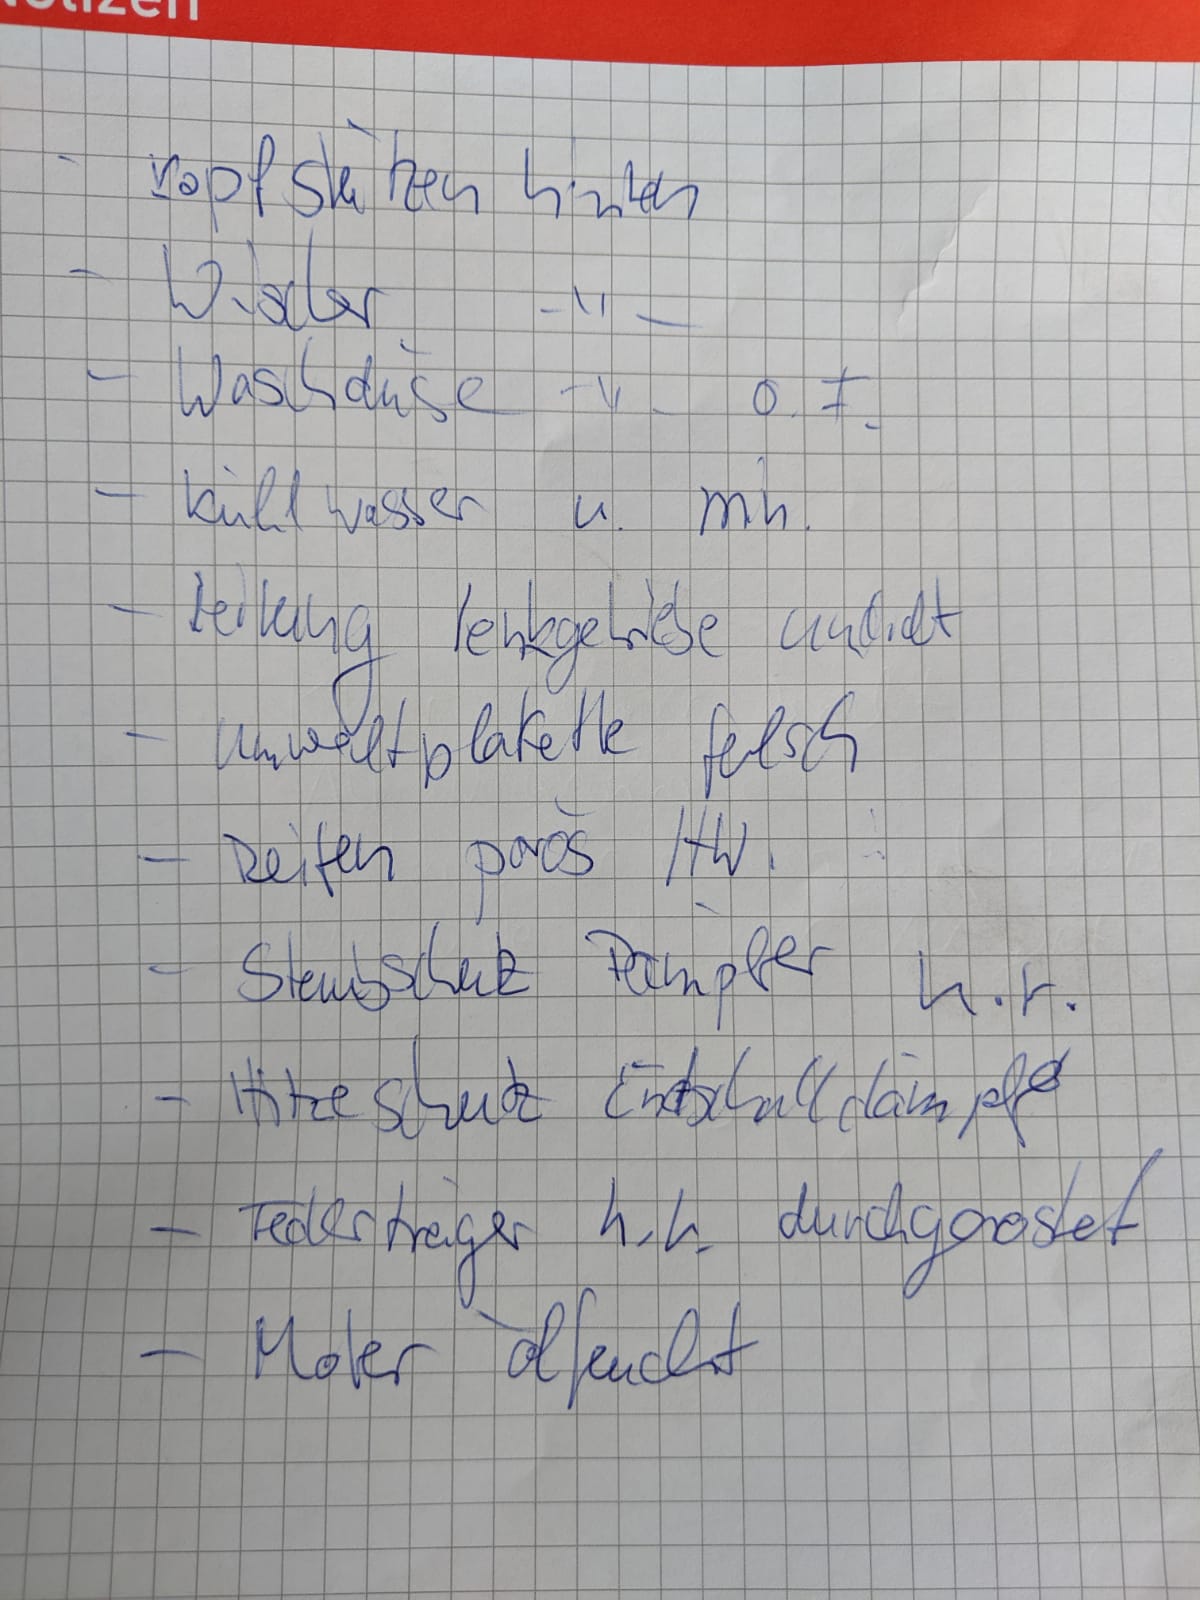 Notizen
- Kopfstützen hinten
- Wischer -"-
- Waschdüse -"- o. F.
- Kühlwasser u. min.
- Leitung Lenkgetriebe undicht
- Umweltplakette falsch
- Reifen porös HW.
- Staubschutz Dämpfer h. r.
- Hitzeschutz Endschalldämpfer
- Federträger h. h. durchgerostet
- Motor ölfeucht